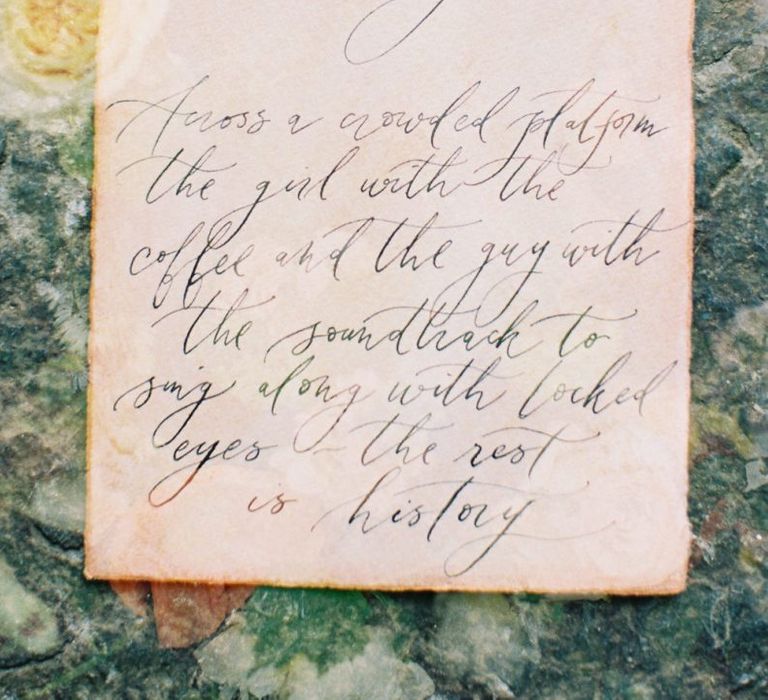 Across a crowded platform
the girl with the
coffee and the guy with
the soundtrack to
sing along with locked
eyes - the rest
is history